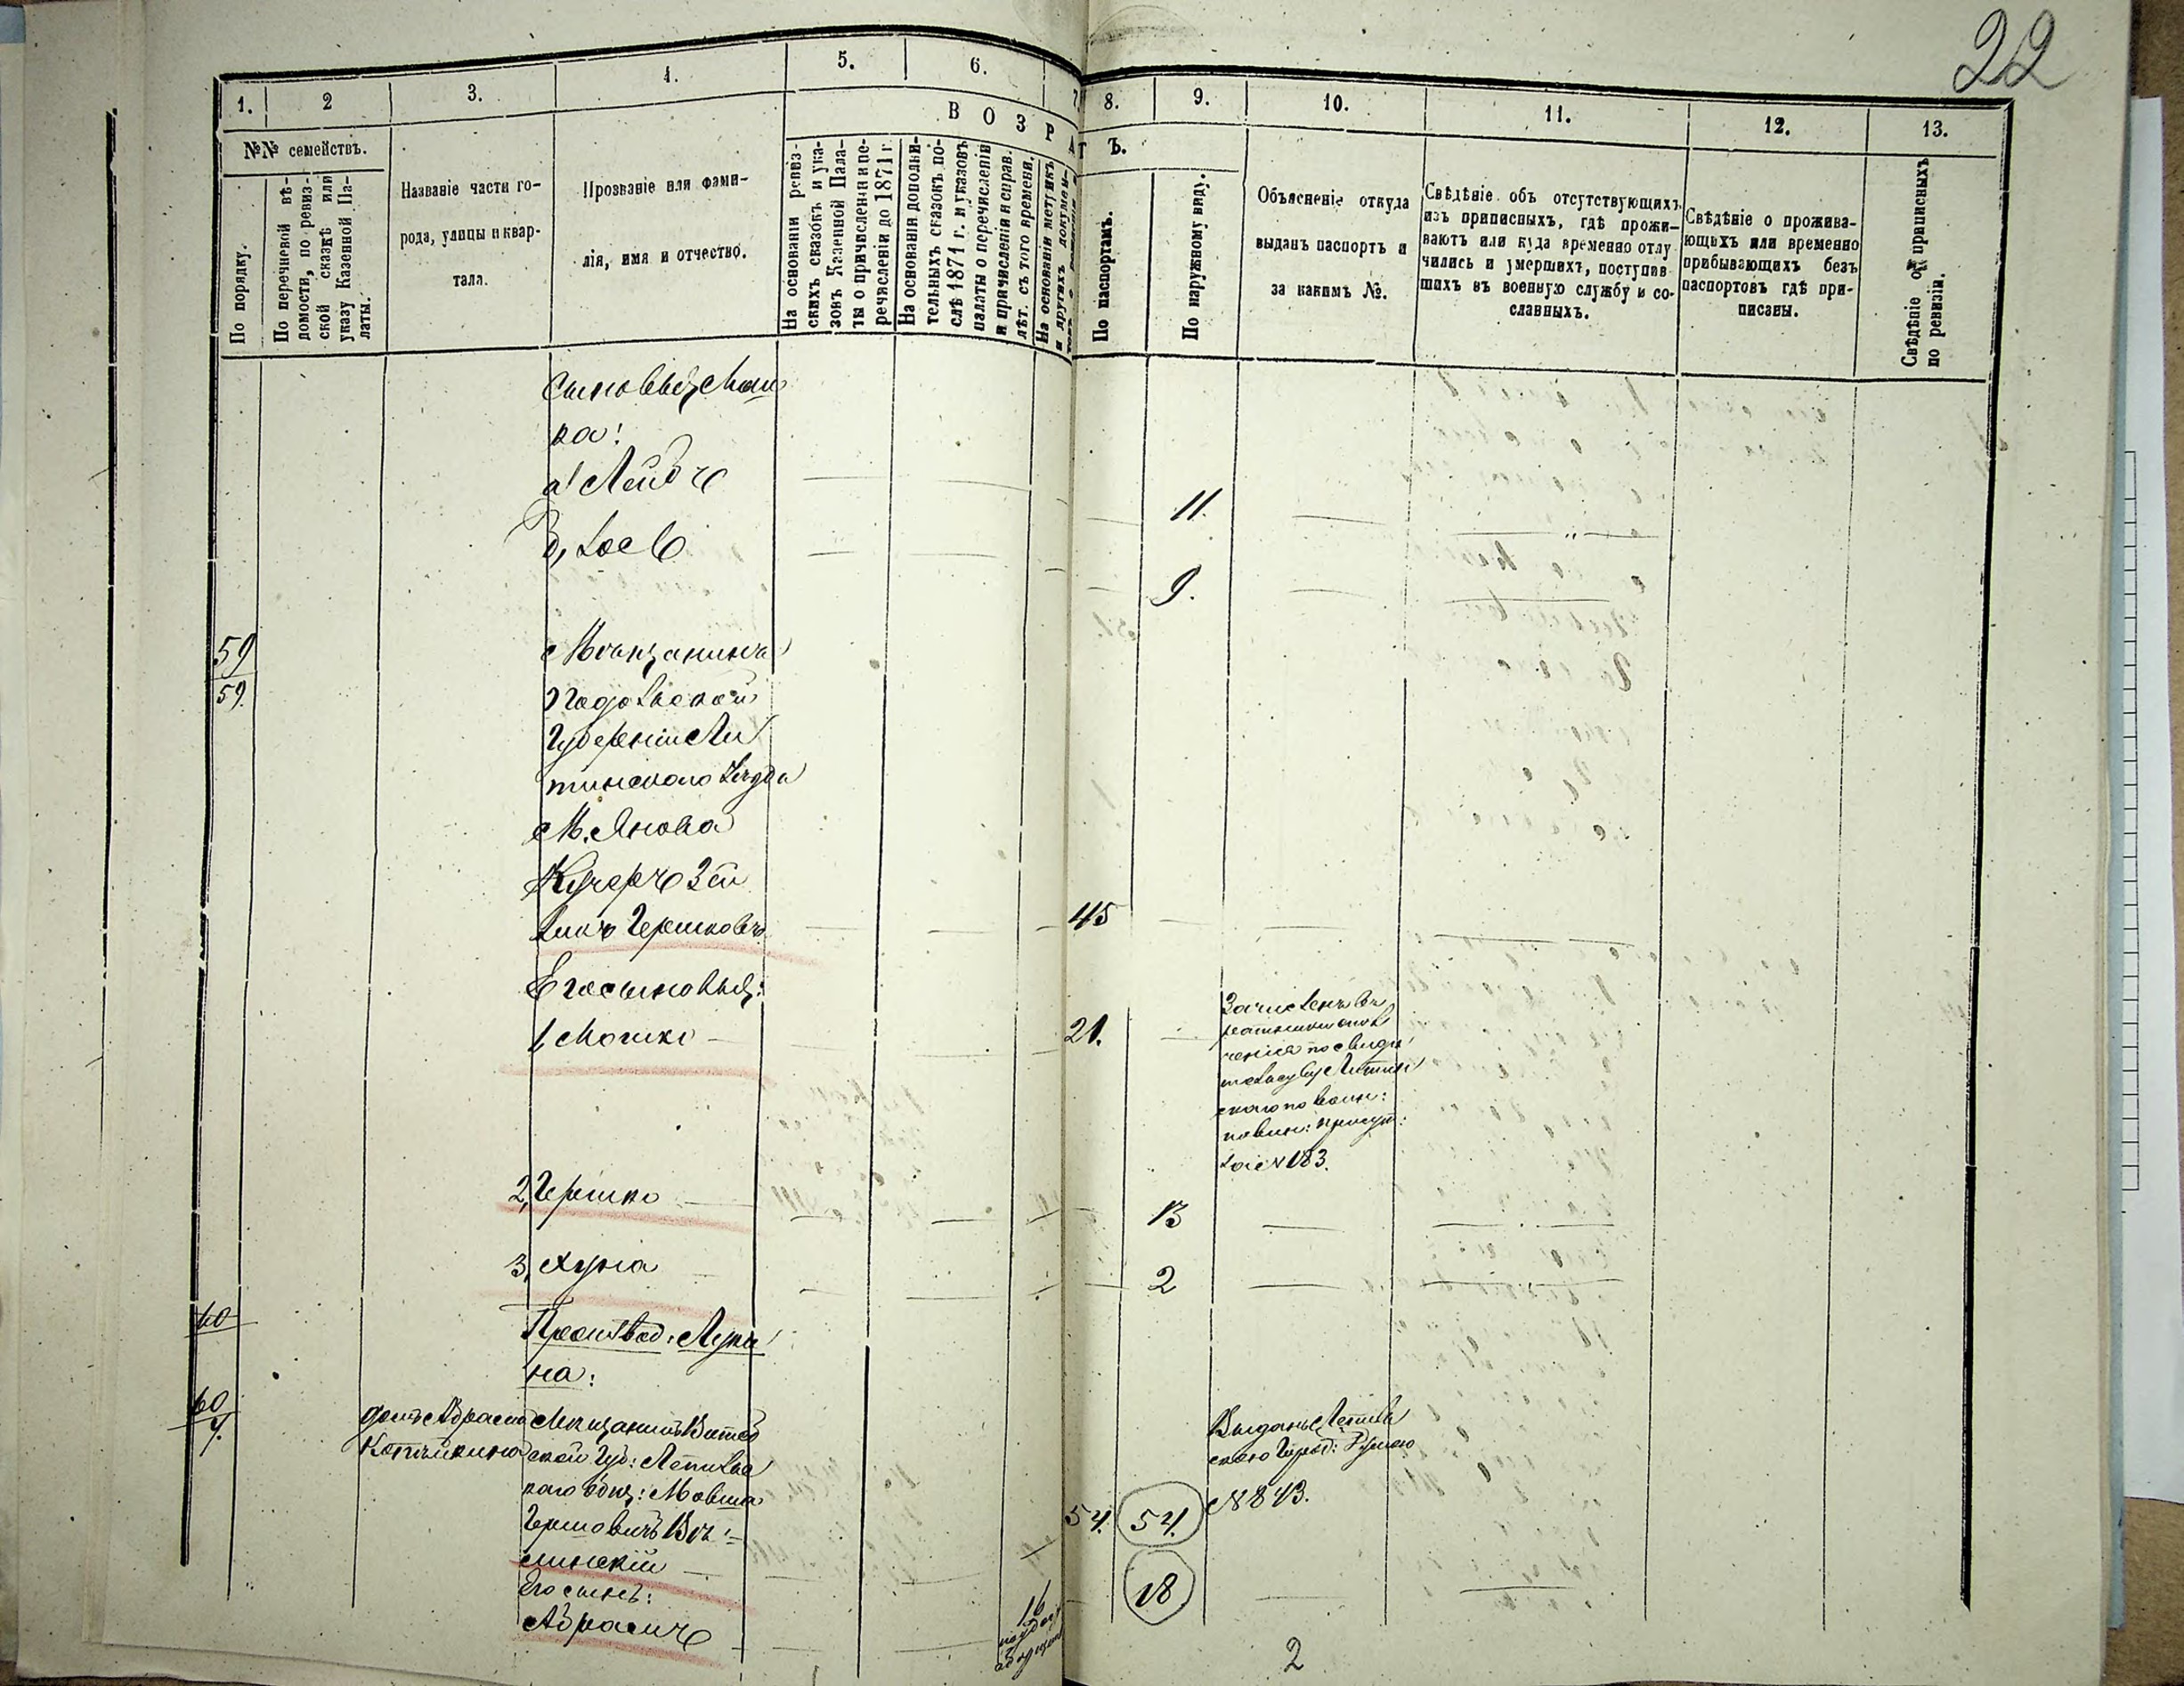 22
1.
2
3.
4.
5.
6.
7.
8.
9.
10.
11.
12.
13.
№№ семействъ.
ВОЗРАСТЪ.
По порядку.
По перечневой вѣ-
домости, по ревиз-
ской сказкѣ или
указу Казенной Па-
латы.
Названіе части го-
рода, улицы и квар-
тала.
Прозваніе или фами-
лія, имя и отчество.
На основаніи ревиз-
скихъ сказокъ и ука-
зовъ Казенной Пала-
ты о причисленіи и пе-
речисленіи до 1871 г.
На основаніи дополни-
тельныхъ сказокъ по-
слѣ 1871 г. и указовъ
палаты о перечисленіи
и причисленіи и справ.
лѣт. съ того времени.
На основаніи метрикъ
и другихъ докумен-
По паспортамъ.
По наружному виду.
Объясненіе откуда
выданъ паспортъ и
за какимъ №.
Свѣдѣніе объ отсутствующихъ
изъ приписныхъ, гдѣ прожи-
ваютъ или куда временно отлу
чились и умершихъ, поступив
шихъ въ военную службу и со-
сланныхъ.
Свѣдѣніе о прожива-
ющихъ или временно
прибывающихъ безъ
паспортовъ гдѣ при-
писаны.
Свѣдѣніе о приписныхъ
по ревизіи.
Сыновья Мош
ка:
а, Лейбъ
11.
б, Іосъ
9.
59
59.
Мѣщанинъ
Подольской
Губерніи Ли
тинскаго уѣзда
М. Янова
Кучеръ Зей
ликъ Гершковъ
45
Его сыновья:
1, Мошко
21.
Зачисленъ въ
ратники опол
ченія по свидѣ
тельству Литин
скаго по воин:
повин: присут:
за № 183.
2, Гершко
13
3, Хуна
2
60
Производ: Лука
на:
60
4.
домъ Абрама
Мѣщанинъ Витеб
ской Губ: Лепельс
каго общ: Мовша
Гершовичъ
линскій
54.
54.
Выданъ Лепель
скою Город:
№ 843.
Его сынъ:
Абрамъ
16
18
2